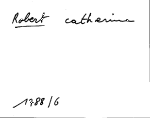 Robert catharina
1788/6